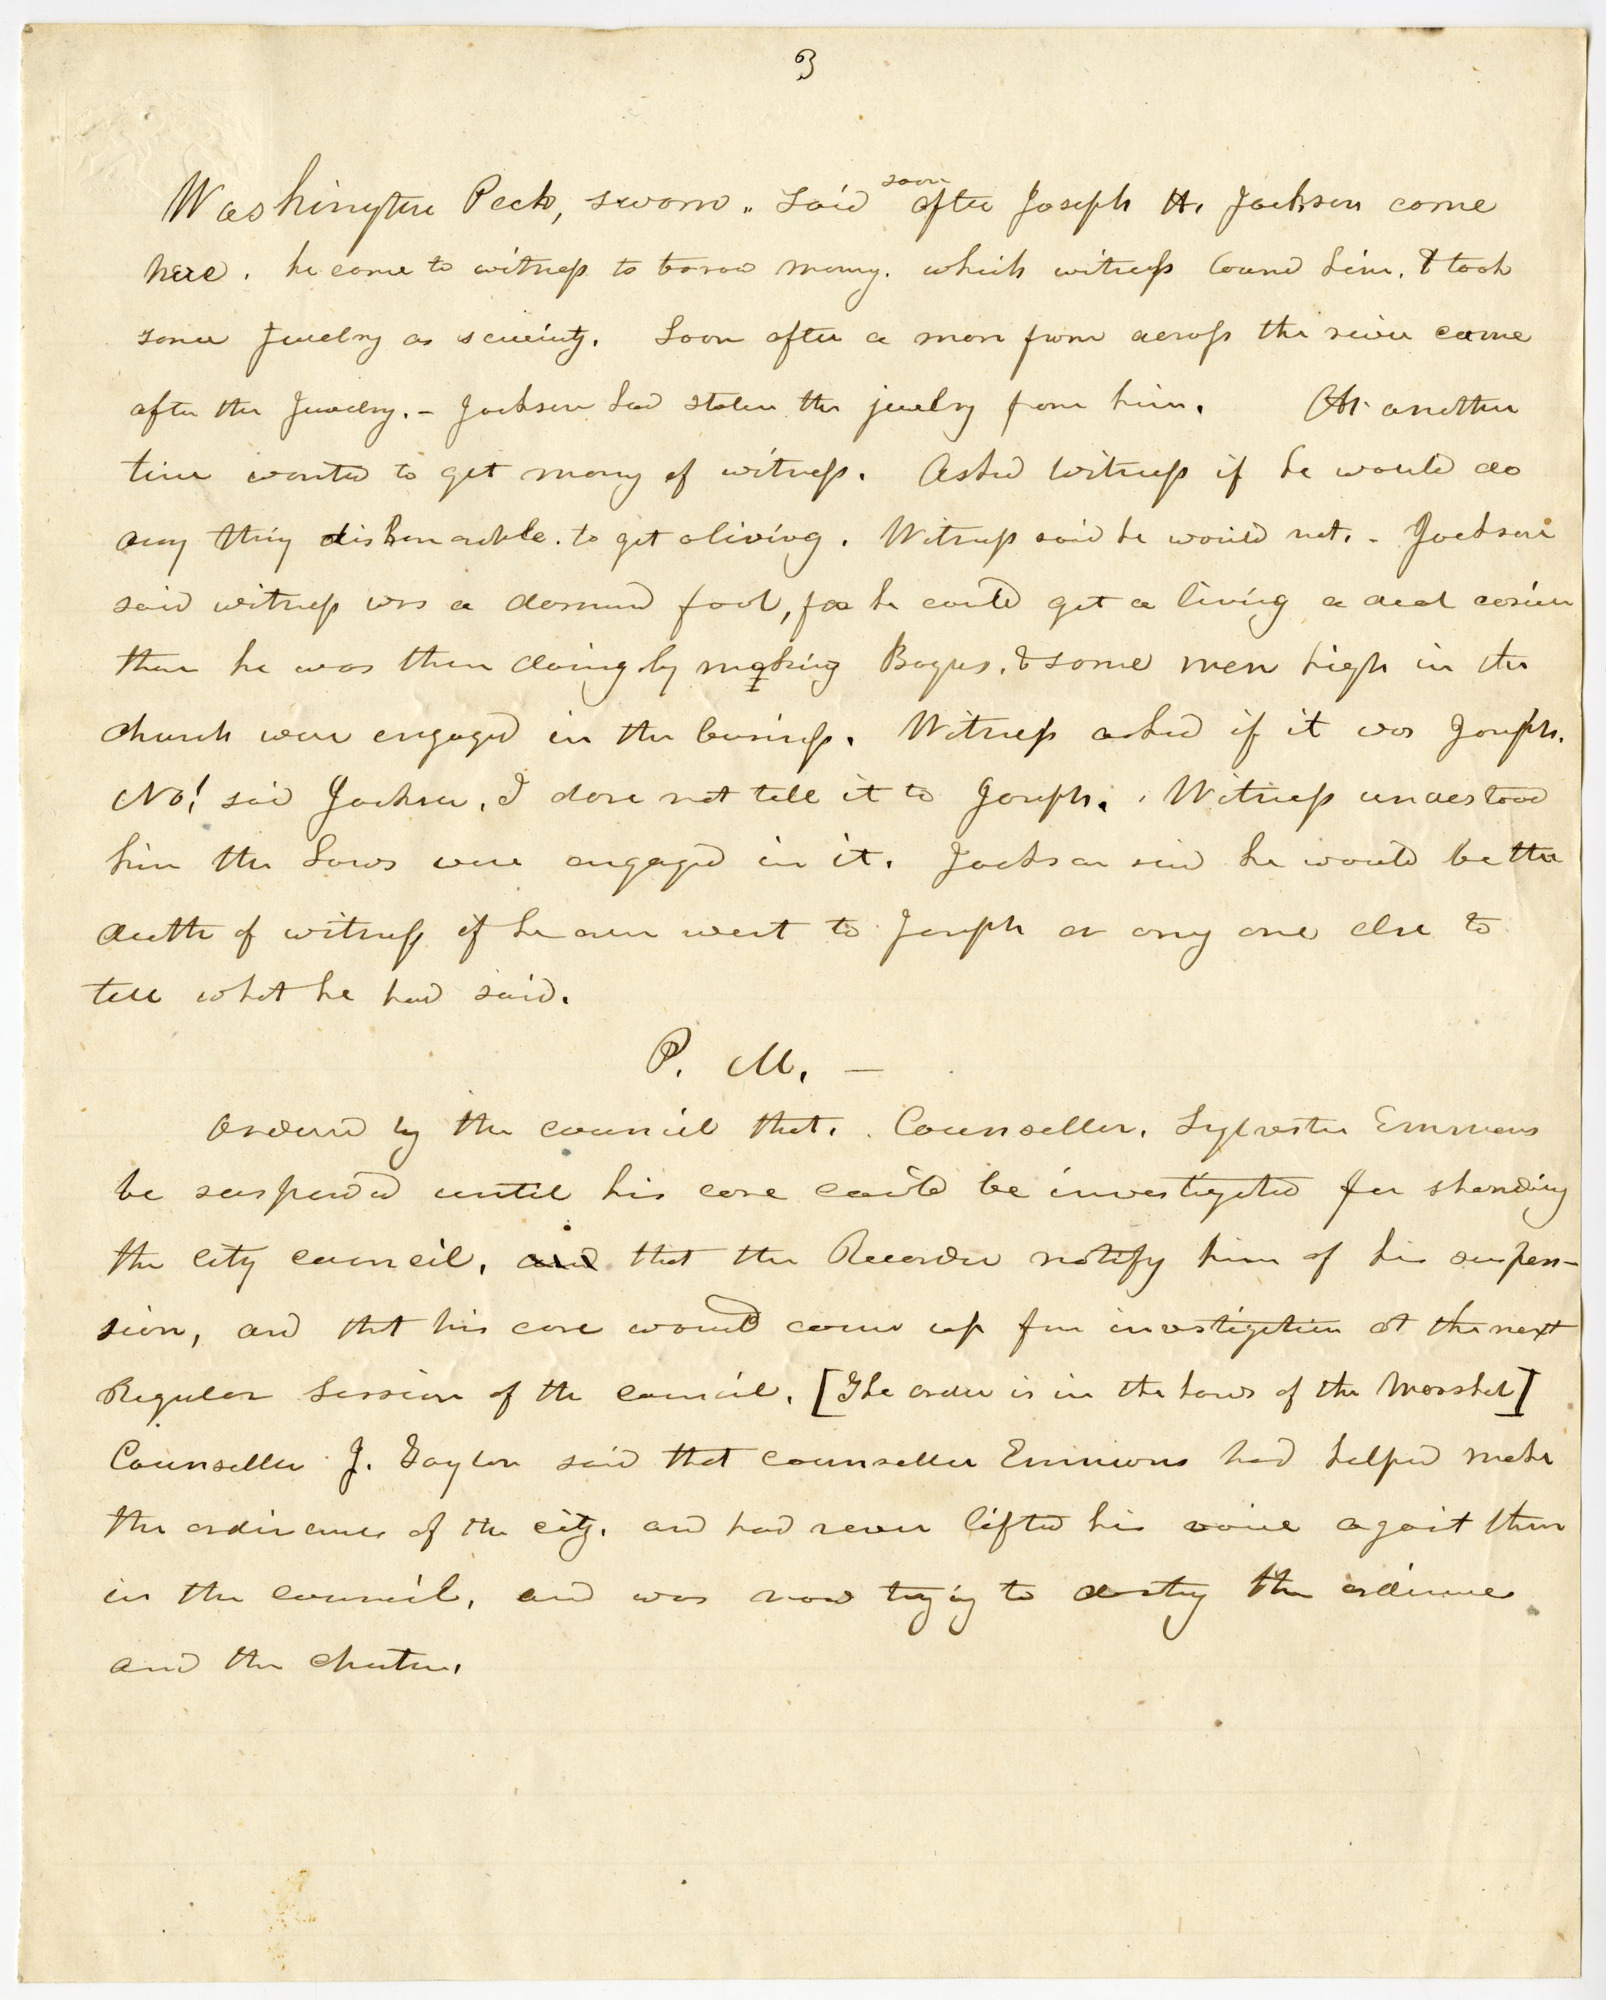 3
Washington Peck, sworn. said soon after Joseph H. Jackson come
here. he came to witness to borow money. which witness loand him. & took
some Jewelry as security. Soon after a man from across the river came
after the Jewelry. - Jackson had stolen the jewelry from him. At another
time wanted to get money of witness. Asked witness if he would do
any thing dishonorable. to get a living. Witness said he would not. - Jackson
said witness was a damned fool, for he could get a living a deal easier
than he was then doing by making Bogus. & some men high in the
church were engaged in the business. Witness asked if it was Joseph.
No! said Jackson, I dare not tell it to Joseph. Witness understood
him the Laws were engaged in it. Jackson said he would be the
death of witness if he ever went to Joseph or any one else to
tell what he had said.
P. M. —
Ordered by the council that. Counseller. Sylvester Emmons
be suspended until his case could be investigated for slandering
the city council, and that the Recorder notify him of his suspen-
sion, and that his case would come up for investigation at the next
Regular Session of the council. [The order is in the hands of the Marshal]
Counseller J. Taylor said that counseller Emmons had helped make
the ordinances of the city. and had never lifted his voice against them
in the council, and was now trying to destroy the ordinances
and the charter.